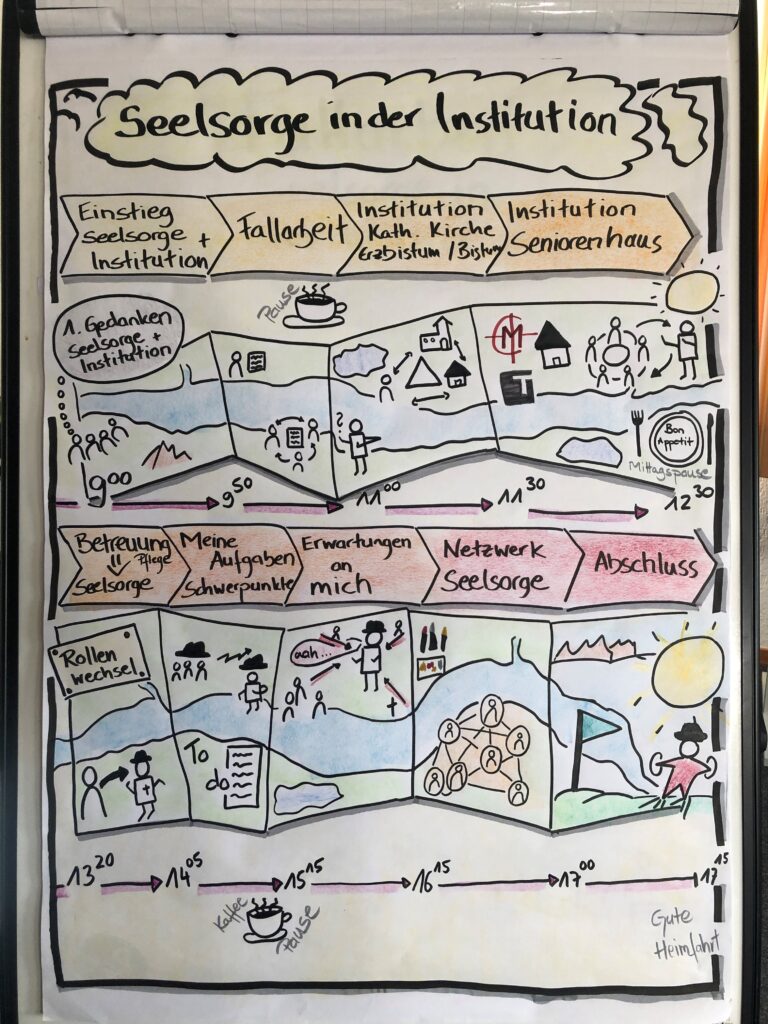 Seelsorge in der Institution
Einstieg
Seelsorge +
Institution
Fallarbeit
Institution
Kath. Kirche
Erzbistum / Bistum
Institution
Seniorenhaus
Pause
1. Gedanken
Seelsorge +
Institution
M
T
Bon
Appetit
Mittagspause
9 00
9 50
11 00
11 30
12 30
Betreuung
Pflege
Seelsorge
Meine
Aufgaben
Schwerpunkte
Erwartungen
an
mich
Netzwerk
Seelsorge
Abschluss
Rollen
wechsel
To
do
aah...
13 20
14 05
15 15
16 15
17 00
17 15
Kaffee
Pause
Gute
Heimfahrt